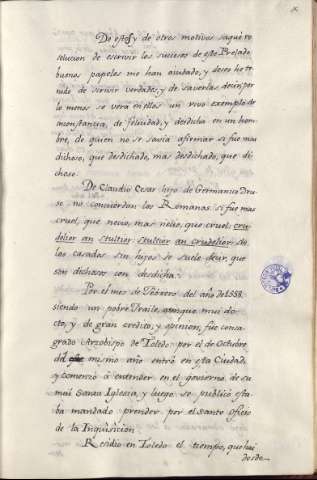 De estos, y de otros motivos saqué re
solucion de escrivir los sucesos de este Prelado,
buenos papeles me han aiudado, y deseo he te-
nido de escrivir verdades, y de saverlas decir, por
lo menos se verá en ellos un vivo exemplo de
inconstancia, de felicidad, y desdicha en un hom-
bre, de quien no se savia afirmar si fue mas
dichoso, que desdichado, mas desdichado, que di-
choso.
De Claudio Cesar hijo de Germanico Dru-
so no concuerdan los Romanos si fue mas
cruel, que necio, mas necio, que cruel, cru-
delior an stultior, stultior an crudelior, de
los casados sin hijos se suele decir, que
son dichosos con desdicha.
Por el mes de Febrero del año de 1558.
siendo un pobre Fraile, aunque mui do-
cto, y de gran credito, y opinion, fue consa-
grado Arzobispo de Toledo por el de Octubre
del mismo año entró en esta Ciudad,
y comenzó á entender en el govierno de su
mui Santa Iglesia, y luego se publicó esta-
ba mandado prender por el santo oficio
de la Inquisicion
Residió en Toledo el tiempo, que hai
desde